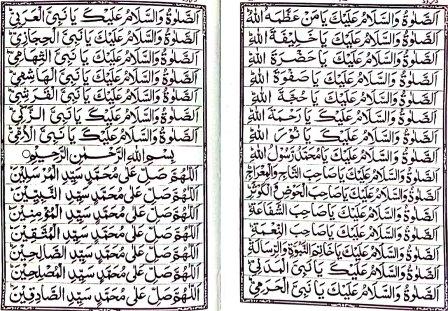 اَلصَّلٰوةُ وَالسَّلَامُ عَلَيْكَ يَا مَنْ عَظَّمَهُ اللّٰهُ
اَلصَّلٰوةُ وَالسَّلَامُ عَلَيْكَ يَا خَلِيْفَةَ اللّٰهِ
اَلصَّلٰوةُ وَالسَّلَامُ عَلَيْكَ يَا حَضْرَةَ اللّٰهِ
اَلصَّلٰوةُ وَالسَّلَامُ عَلَيْكَ يَا صَفْوَةَ اللّٰهِ
اَلصَّلٰوةُ وَالسَّلَامُ عَلَيْكَ يَا حُجَّةَ اللّٰهِ
اَلصَّلٰوةُ وَالسَّلَامُ عَلَيْكَ يَا رَحْمَةَ اللّٰهِ
اَلصَّلٰوةُ وَالسَّلَامُ عَلَيْكَ يَا نُوْرَ اللّٰهِ
اَلصَّلٰوةُ وَالسَّلَامُ عَلَيْكَ يَا مُحَمَّدُ رَّسُوْلُ اللّٰهِ
اَلصَّلٰوةُ وَالسَّلَامُ عَلَيْكَ يَا صَاحِبَ التَّاجِ وَالْمِعْرَاجِ
اَلصَّلٰوةُ وَالسَّلَامُ عَلَيْكَ يَا صَاحِبَ الْحَوْضِ الْكَوْثَرِ
اَلصَّلٰوةُ وَالسَّلَامُ عَلَيْكَ يَا صَاحِبَ الشَّفَاعَةِ
اَلصَّلٰوةُ وَالسَّلَامُ عَلَيْكَ يَا صَاحِبَ النِّعْمَةِ
اَلصَّلٰوةُ وَالسَّلَامُ عَلَيْكَ يَا خَاتِمَ النُّبُوَّةِ وَالرِّسَالَةِ
اَلصَّلٰوةُ وَالسَّلَامُ عَلَيْكَ يَا نَبِيَّ الْمَدَنِيِّ
اَلصَّلٰوةُ وَالسَّلَامُ عَلَيْكَ يَا نَبِيَّ الْحَرَمِيِّ
اَلصَّلٰوةُ وَالسَّلَامُ عَلَيْكَ يَا نَبِيَّ الْعَرَبِيِّ
اَلصَّلٰوةُ وَالسَّلَامُ عَلَيْكَ يَا نَبِيَّ الْحِجَازِيِّ
اَلصَّلٰوةُ وَالسَّلَامُ عَلَيْكَ يَا نَبِيَّ التِّهَامِيِّ
اَلصَّلٰوةُ وَالسَّلَامُ عَلَيْكَ يَا نَبِيَّ الْهَاشِمِيِّ
اَلصَّلٰوةُ وَالسَّلَامُ عَلَيْكَ يَا نَبِيَّ الْقُرَشِيِّ
اَلصَّلٰوةُ وَالسَّلَامُ عَلَيْكَ يَا نَبِيَّ الزَّكِيِّ
اَلصَّلٰوةُ وَالسَّلَامُ عَلَيْكَ يَا نَبِيَّ الْاُمِّيِّ
بِسْمِ اللّٰهِ الرَّحْمٰنِ الرَّحِيْمِ
اَللّٰهُمَّ صَلِّ عَلٰى مُحَمَّدٍ سَيِّدِ الْمُرْسَلِيْنَ
اَللّٰهُمَّ صَلِّ عَلٰى مُحَمَّدٍ سَيِّدِ النَّبِيِّيْنَ
اَللّٰهُمَّ صَلِّ عَلٰى مُحَمَّدٍ سَيِّدِ الْمُؤْمِنِيْنَ
اَللّٰهُمَّ صَلِّ عَلٰى مُحَمَّدٍ سَيِّدِ الْمُتَّقِيْنَ
اَللّٰهُمَّ صَلِّ عَلٰى مُحَمَّدٍ سَيِّدِ الصَّالِحِيْنَ
اَللّٰهُمَّ صَلِّ عَلٰى مُحَمَّدٍ سَيِّدِ الْمُصْلِحِيْنَ
اَللّٰهُمَّ صَلِّ عَلٰى مُحَمَّدٍ سَيِّدِ الصَّادِقِيْنَ